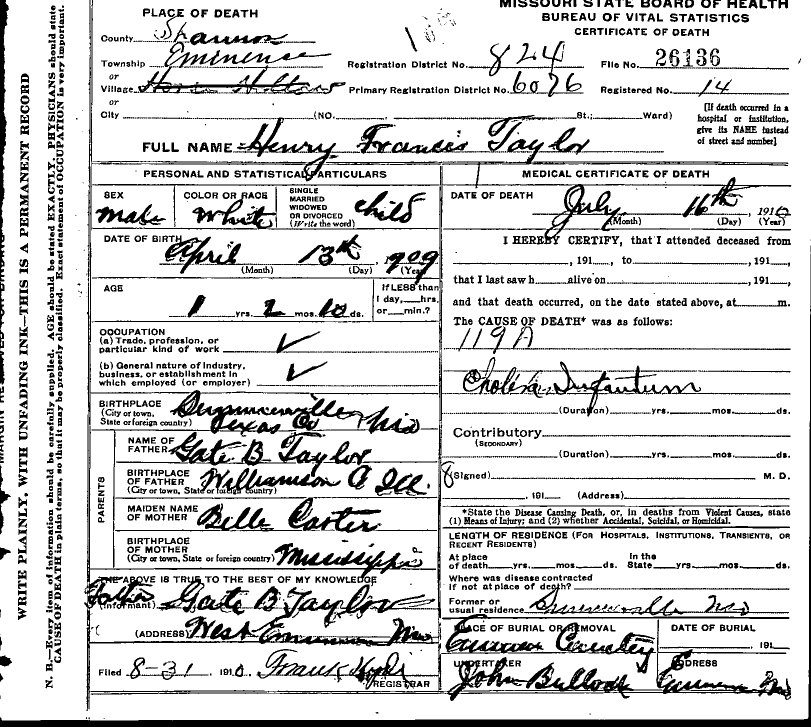 MISSOURI STATE BOARD OF HEALTH
BUREAU OF VITAL STATISTICS
CERTIFICATE OF DEATH
PLACE OF DEATH
County Shannon
Township Eminense
or
Village
or
City (NO. St.; Ward)
Registration District No. 824 File No. 26136
Primary Registration District No. 6076 Registered No. 14
[If death occurred in a
hospital or institution,
give its NAME instead
of street and number]
FULL NAME Henry Francis Taylor
PERSONAL AND STATISTICAL PARTICULARS
SEX
Male
COLOR OR RACE
White
SINGLE
MARRIED
WIDOWED
OR DIVORCED
(Write the word)
child
DATE OF BIRTH
April 13th, 1909
(Month) (Day) (Year)
AGE
1 yrs. 2 mos. 10 ds.
If LESS than
1 day,___hrs.
or___min.?
OCCUPATION
(a) Trade, profession, or
particular kind of work ✓
(b) General nature of industry,
business, or establishment in
which employed (or employer) ✓
BIRTHPLACE
(City or town,
State or foreign country)
Summerville
Texas Co Mo
PARENTS
NAME OF
FATHER Gate B Taylor
BIRTHPLACE
OF FATHER
(City or town, State or foreign country)
Williamson Co Ill.
MAIDEN NAME
OF MOTHER Belle Carter
BIRTHPLACE
OF MOTHER
(City or town, State or foreign country)
Mississippi
THE ABOVE IS TRUE TO THE BEST OF MY KNOWLEDGE
Father
(Informant) Gate B Taylor
(ADDRESS) West Eminence Mo
Filed 8-31 1910. Frank Hyde
REGISTRAR
MEDICAL CERTIFICATE OF DEATH
DATE OF DEATH
July 16th, 1910
(Month) (Day) (Year)
I HEREBY CERTIFY, that I attended deceased from
, 191__, to , 191__,
that I last saw h alive on , 191__,
and that death occurred, on the date stated above, at m.
The CAUSE OF DEATH* was as follows:
119A
Cholera Infantum
(Duration) yrs. mos. ds.
Contributory
(SECONDARY)
(Duration) yrs. mos. ds.
(Signed) M. D.
, 191__ (Address)
*State the Disease Causing Death, or, in deaths from Violent Causes, state
(1) Means of Injury; and (2) whether Accidental, Suicidal, or Homicidal.
LENGTH OF RESIDENCE (FOR HOSPITALS, INSTITUTIONS, TRANSIENTS, OR
RECENT RESIDENTS)
At place
of death yrs. mos. ds.
In the
State yrs. mos. ds.
Where was disease contracted
if not at place of death?
Former or
usual residence Summerville Mo
PLACE OF BURIAL OR REMOVAL
Eminence Cemetery
DATE OF BURIAL
, 191__
UNDERTAKER
John Bullock
ADDRESS
Eminence Mo
WRITE PLAINLY, WITH UNFADING INK—THIS IS A PERMANENT RECORD
N. B.—Every item of information should be carefully supplied. AGE should be stated EXACTLY. PHYSICIANS should state
CAUSE OF DEATH in plain terms, so that it may be properly classified. Exact statement of OCCUPATION is very important.